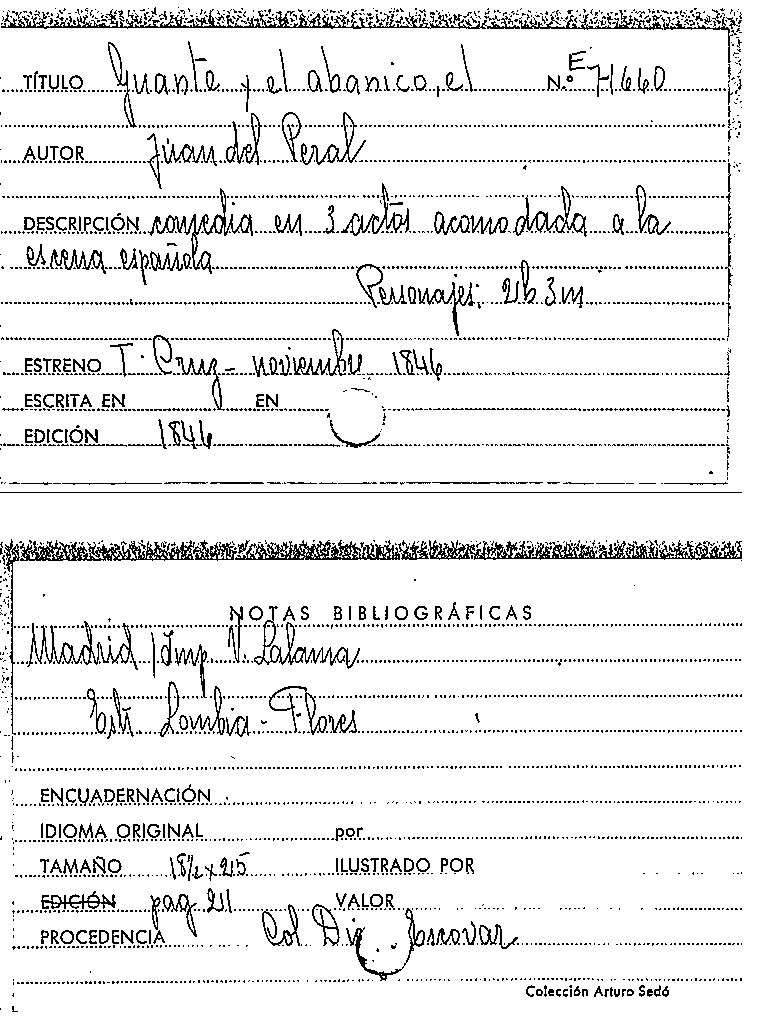 TÍTULO Guante y el abanico, el N.º E 71660
AUTOR Juan del Peral
DESCRIPCIÓN comedia en 3 actos acomodada a la
escena española
Personajes: 2h 3m
ESTRENO T. Cruz - noviembre 1846
ESCRITA EN EN
EDICIÓN 1846
NOTAS BIBLIOGRÁFICAS
Madrid / Imp V. Lalama
Estr. Lombia - Flores
ENCUADERNACIÓN
IDIOMA ORIGINAL por
TAMAÑO 18½ x 215 ILUSTRADO POR
EDICIÓN pag 211 VALOR
PROCEDENCIA Col Escovar
Colección Arturo Sedó